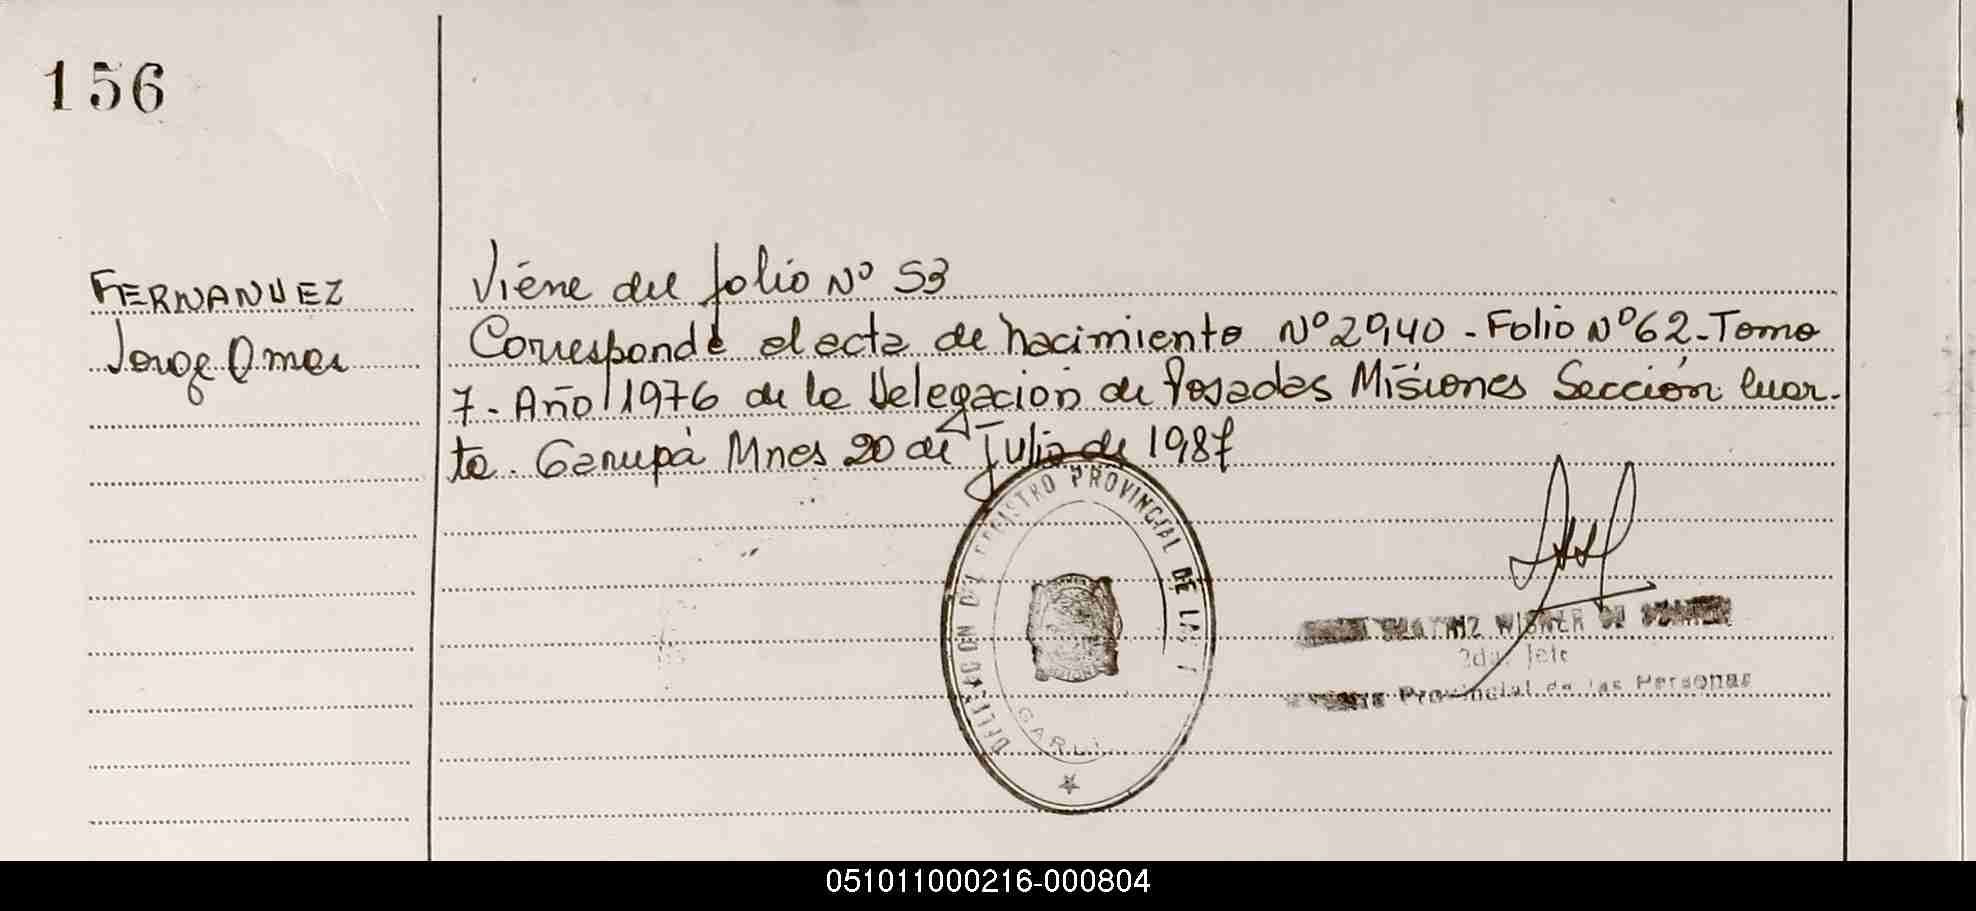 156
FERNANDEZ
Jorge Omar
Viene del folio Nº 53
Corresponde al acta de nacimiento Nº 2940 - Folio Nº 62 - Tomo
7 - Año 1976 de la Delegación de Posadas Misiones Sección Cuar-
ta. Garupá Mnes 20 de Julio de 1987
DELEGACION DEL REGISTRO PROVINCIAL DE LAS
BEATRIZ WISNER DE
2da. Jefe
Provincial de las Personas
051011000216-000804